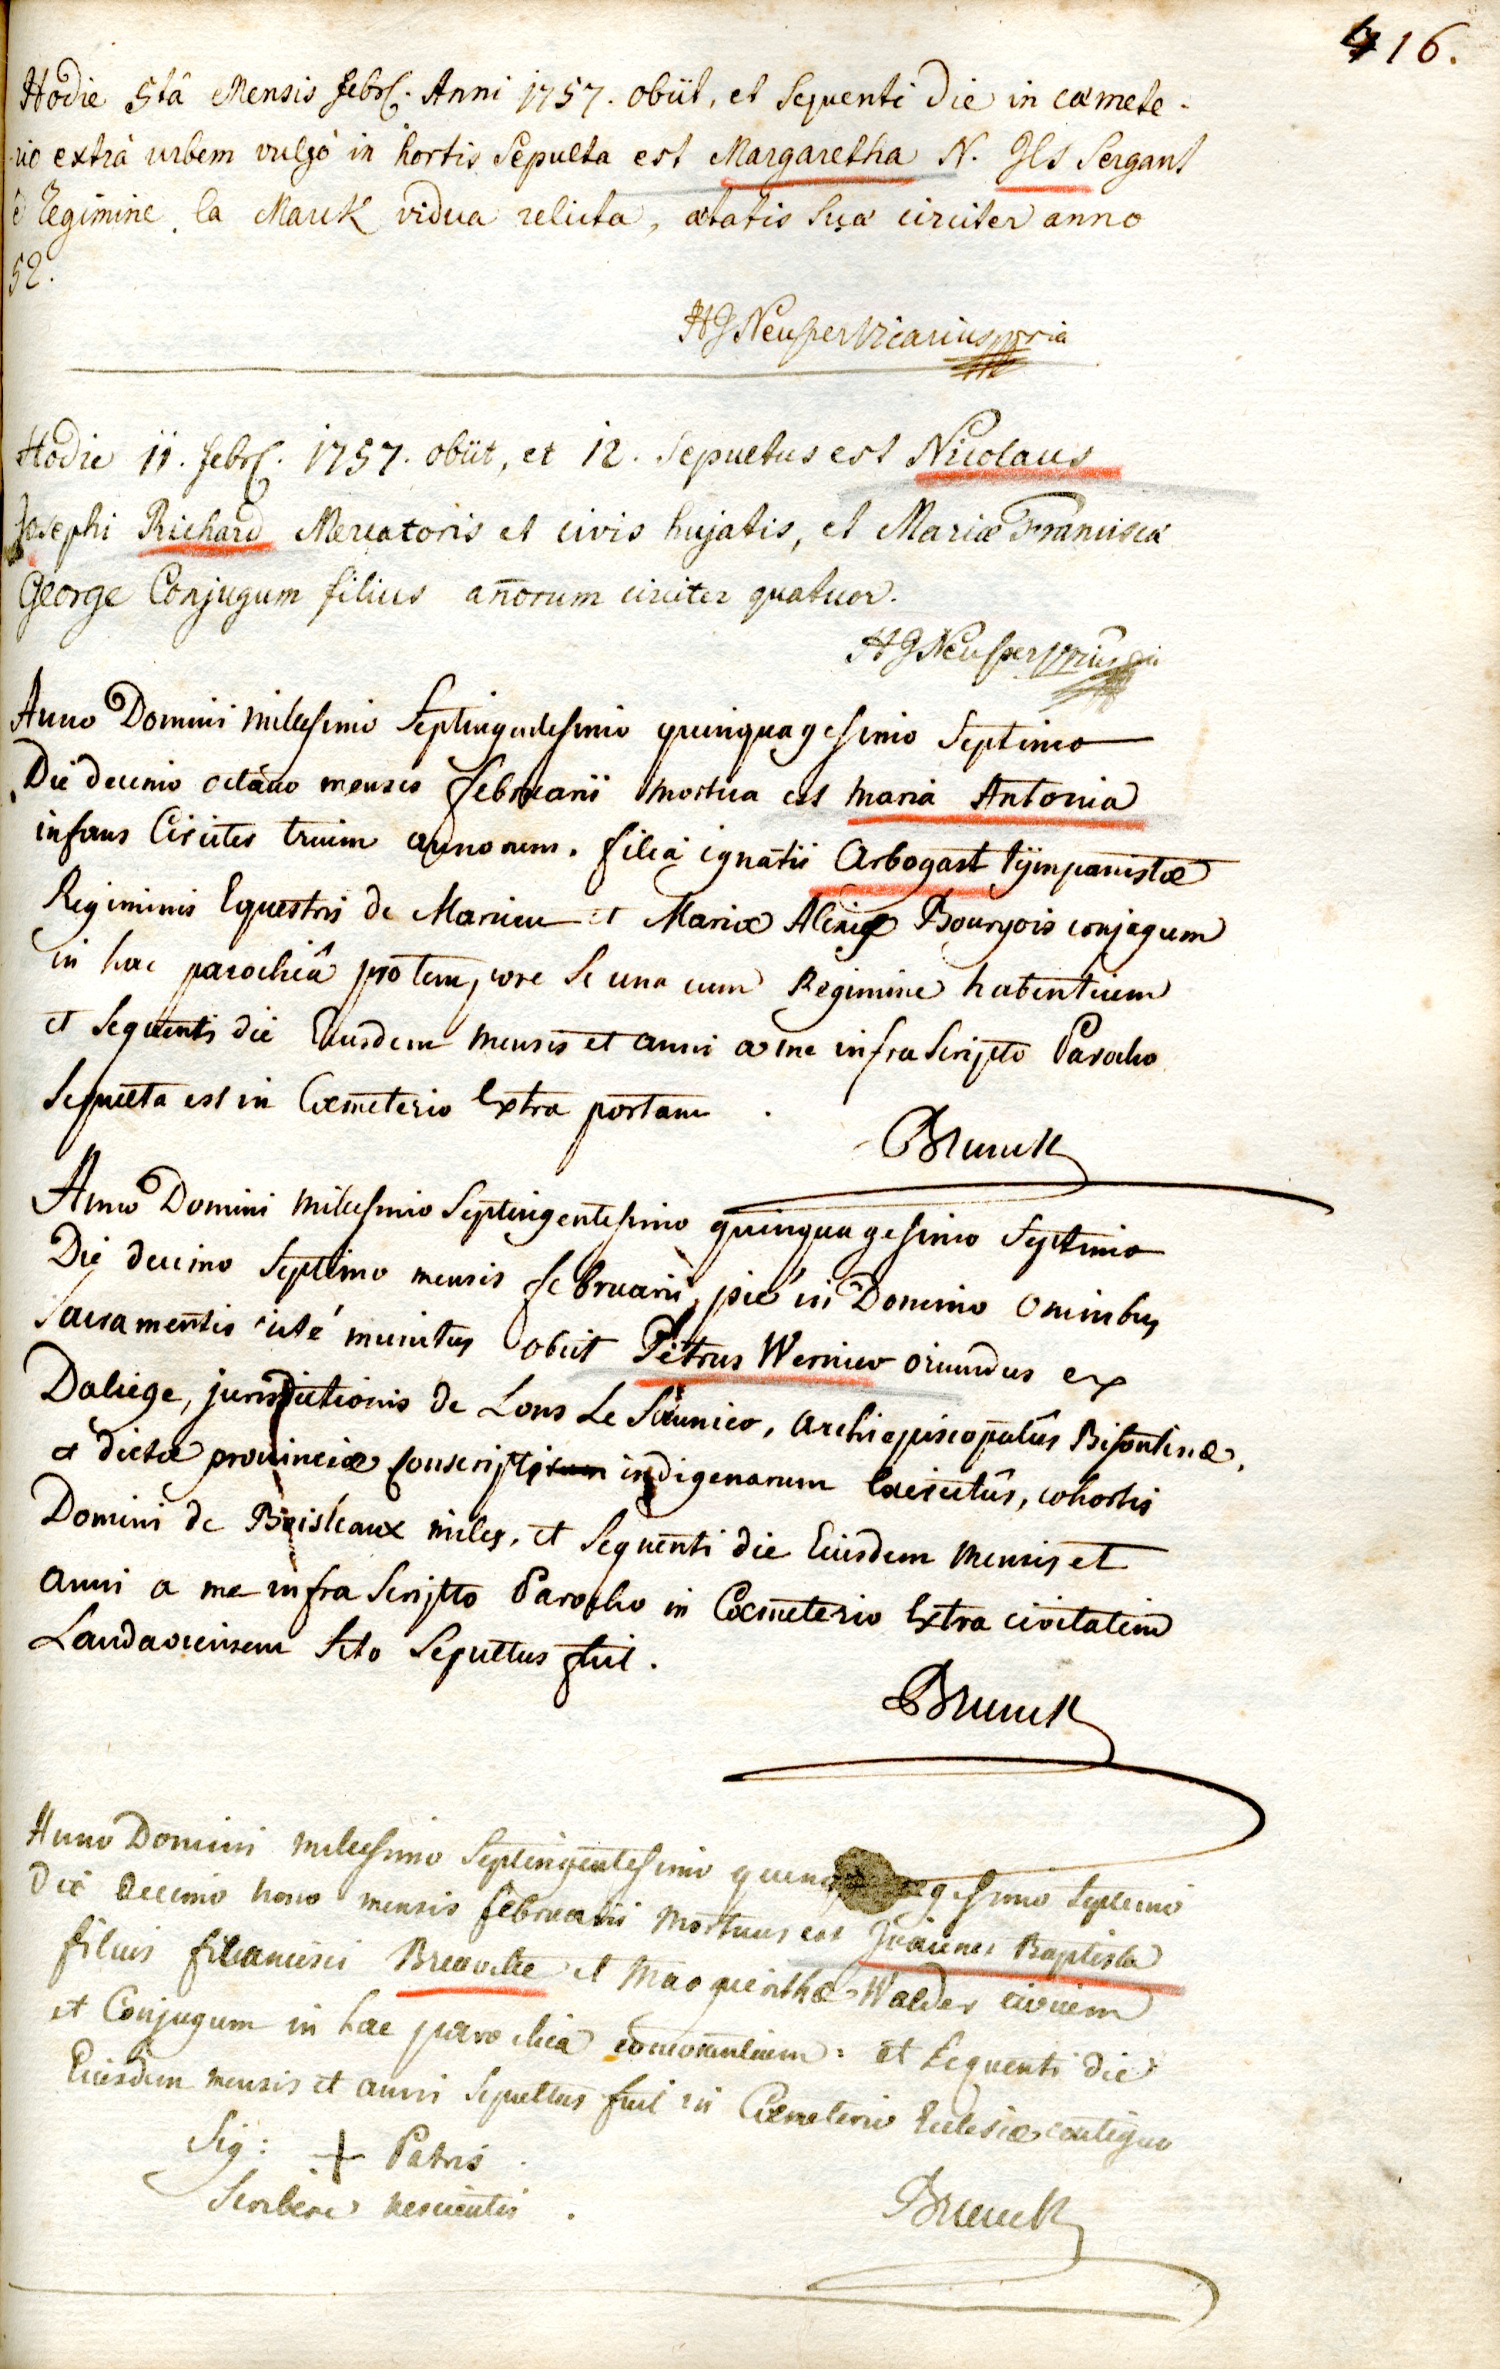 416.
Hodie 5tâ Mensis febr. Anni 1757. obiit, et sequenti Die in cœmete-
-rio extrà urbem vulgò in hortis sepulta est Margaretha N. Jls Sergant
è Regimine la Marck vidua relicta, ætatis suæ circiter anno
52.
HGNeusser Vicarius mpria
Hodie 11. febr. 1757. obiit, et 12. sepultus est Nicolaus
Josephi Richard Mercatoris et civis hujatis, et Mariæ Francisca
George Conjugum filius añorum circiter quatuor.
HGNeusser
Anno Domini millesimo septingentesimo quinquagesimo septimo
Die decimo octavo mensis februarii mortua est maria Antonia
infans Circiter trium annorum. filia ignatii Arbogast tÿmpanistæ
Regiminis Equestris de Marieu et Mariæ Bourgois conjugum
in hac parochiâ pro tempore se una cum Regimine habentium
et sequenti die Eiusdem mensis et anni a me infra scripto Parocho
sepulta est in Cœmeterio Extra portam.
Brunck
Anno Domini millesimo septingentesimo quinquagesimo septimo
Die decimo septimo mensis februarii, piè in Domino Omnibus
sacramentis ritè munitus obiit Petrus Wernier oriundus ex
Daliege, jurisdictionis de Lons Le Saunier, archiepiscopatûs Bisontinæ,
et dictæ provinciæ conscript indigenarum Exercitûs, cohortis
Domini de Boisleaux miles, et sequenti die Eiusdem mensis et
anni a me infra scripto Parocho in Cœmeterio Extra civitatem
Landaviensem sito sepultus fuit.
Brunck
Anno Domini millesimo septingentesimo quinquagesimo septimo
Die decimo nono mensis februarii mortuus est Joannes Baptista
filius francisci et Marguerithæ Walder civium
et Conjugum in hac parochia commorantium: et sequenti die
Eiusdem mensis et anni sepultus fuit in Cœmeterio Ecclesiæ contiguo
Sig: + Patris
Scribere nescientis.
Brunck